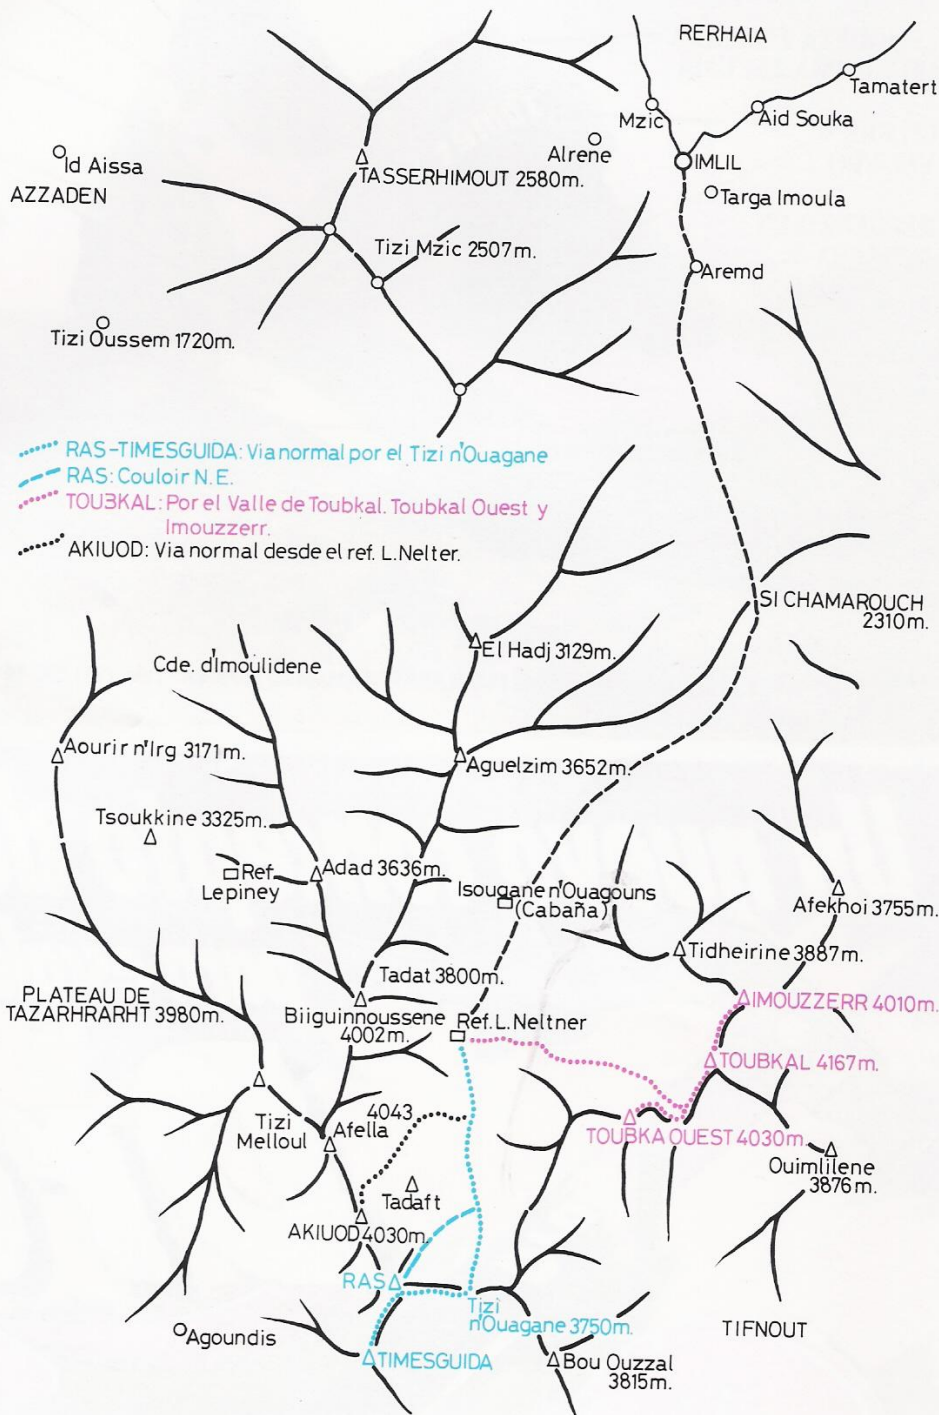 RERHAIA
Tamatert
Mzic
Aid Souka
Alrene
IMLIL
Id Aissa
AZZADEN
TASSERHIMOUT 2580m.
Targa Imoula
Tizi Mzic 2507m.
Aremd
Tizi Oussem 1720m.
RAS-TIMESGUIDA: Via normal por el Tizi n'Ouagane
RAS: Couloir N.E.
TOUBKAL: Por el Valle de Toubkal. Toubkal Ouest y
Imouzzerr.
AKIUOD: Via normal desde el ref. L. Nelter.
SI CHAMAROUCH
2310m.
El Hadj 3129m.
Cde. d'Imoulidene
Aourir n'Irg 3171m.
Aguelzim 3652m.
Tsoukkine 3325m.
Ref.
Lepiney
Adad 3636m.
Isougane n'Ouagouns
(Cabaña)
Afekhoi 3755m.
Tidheirine 3887m.
Tadat 3800m.
PLATEAU DE
TAZARHRARHT 3980m.
Biiguinnoussene
4002m.
Ref. L. Neltner
IMOUZZERR 4010m.
TOUBKAL 4167m.
4043
Afella
Tizi
Melloul
TOUBKA OUEST 4030m.
Ouimlilene
3876m.
Tadaft
AKIUOD 4030m.
RAS
Tizi
n'Ouagane 3750m.
TIFNOUT
Agoundis
TIMESGUIDA
Bou Ouzzal
3815m.